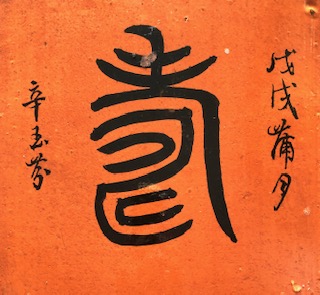 戊戌蒲月
壽
辛玉芬